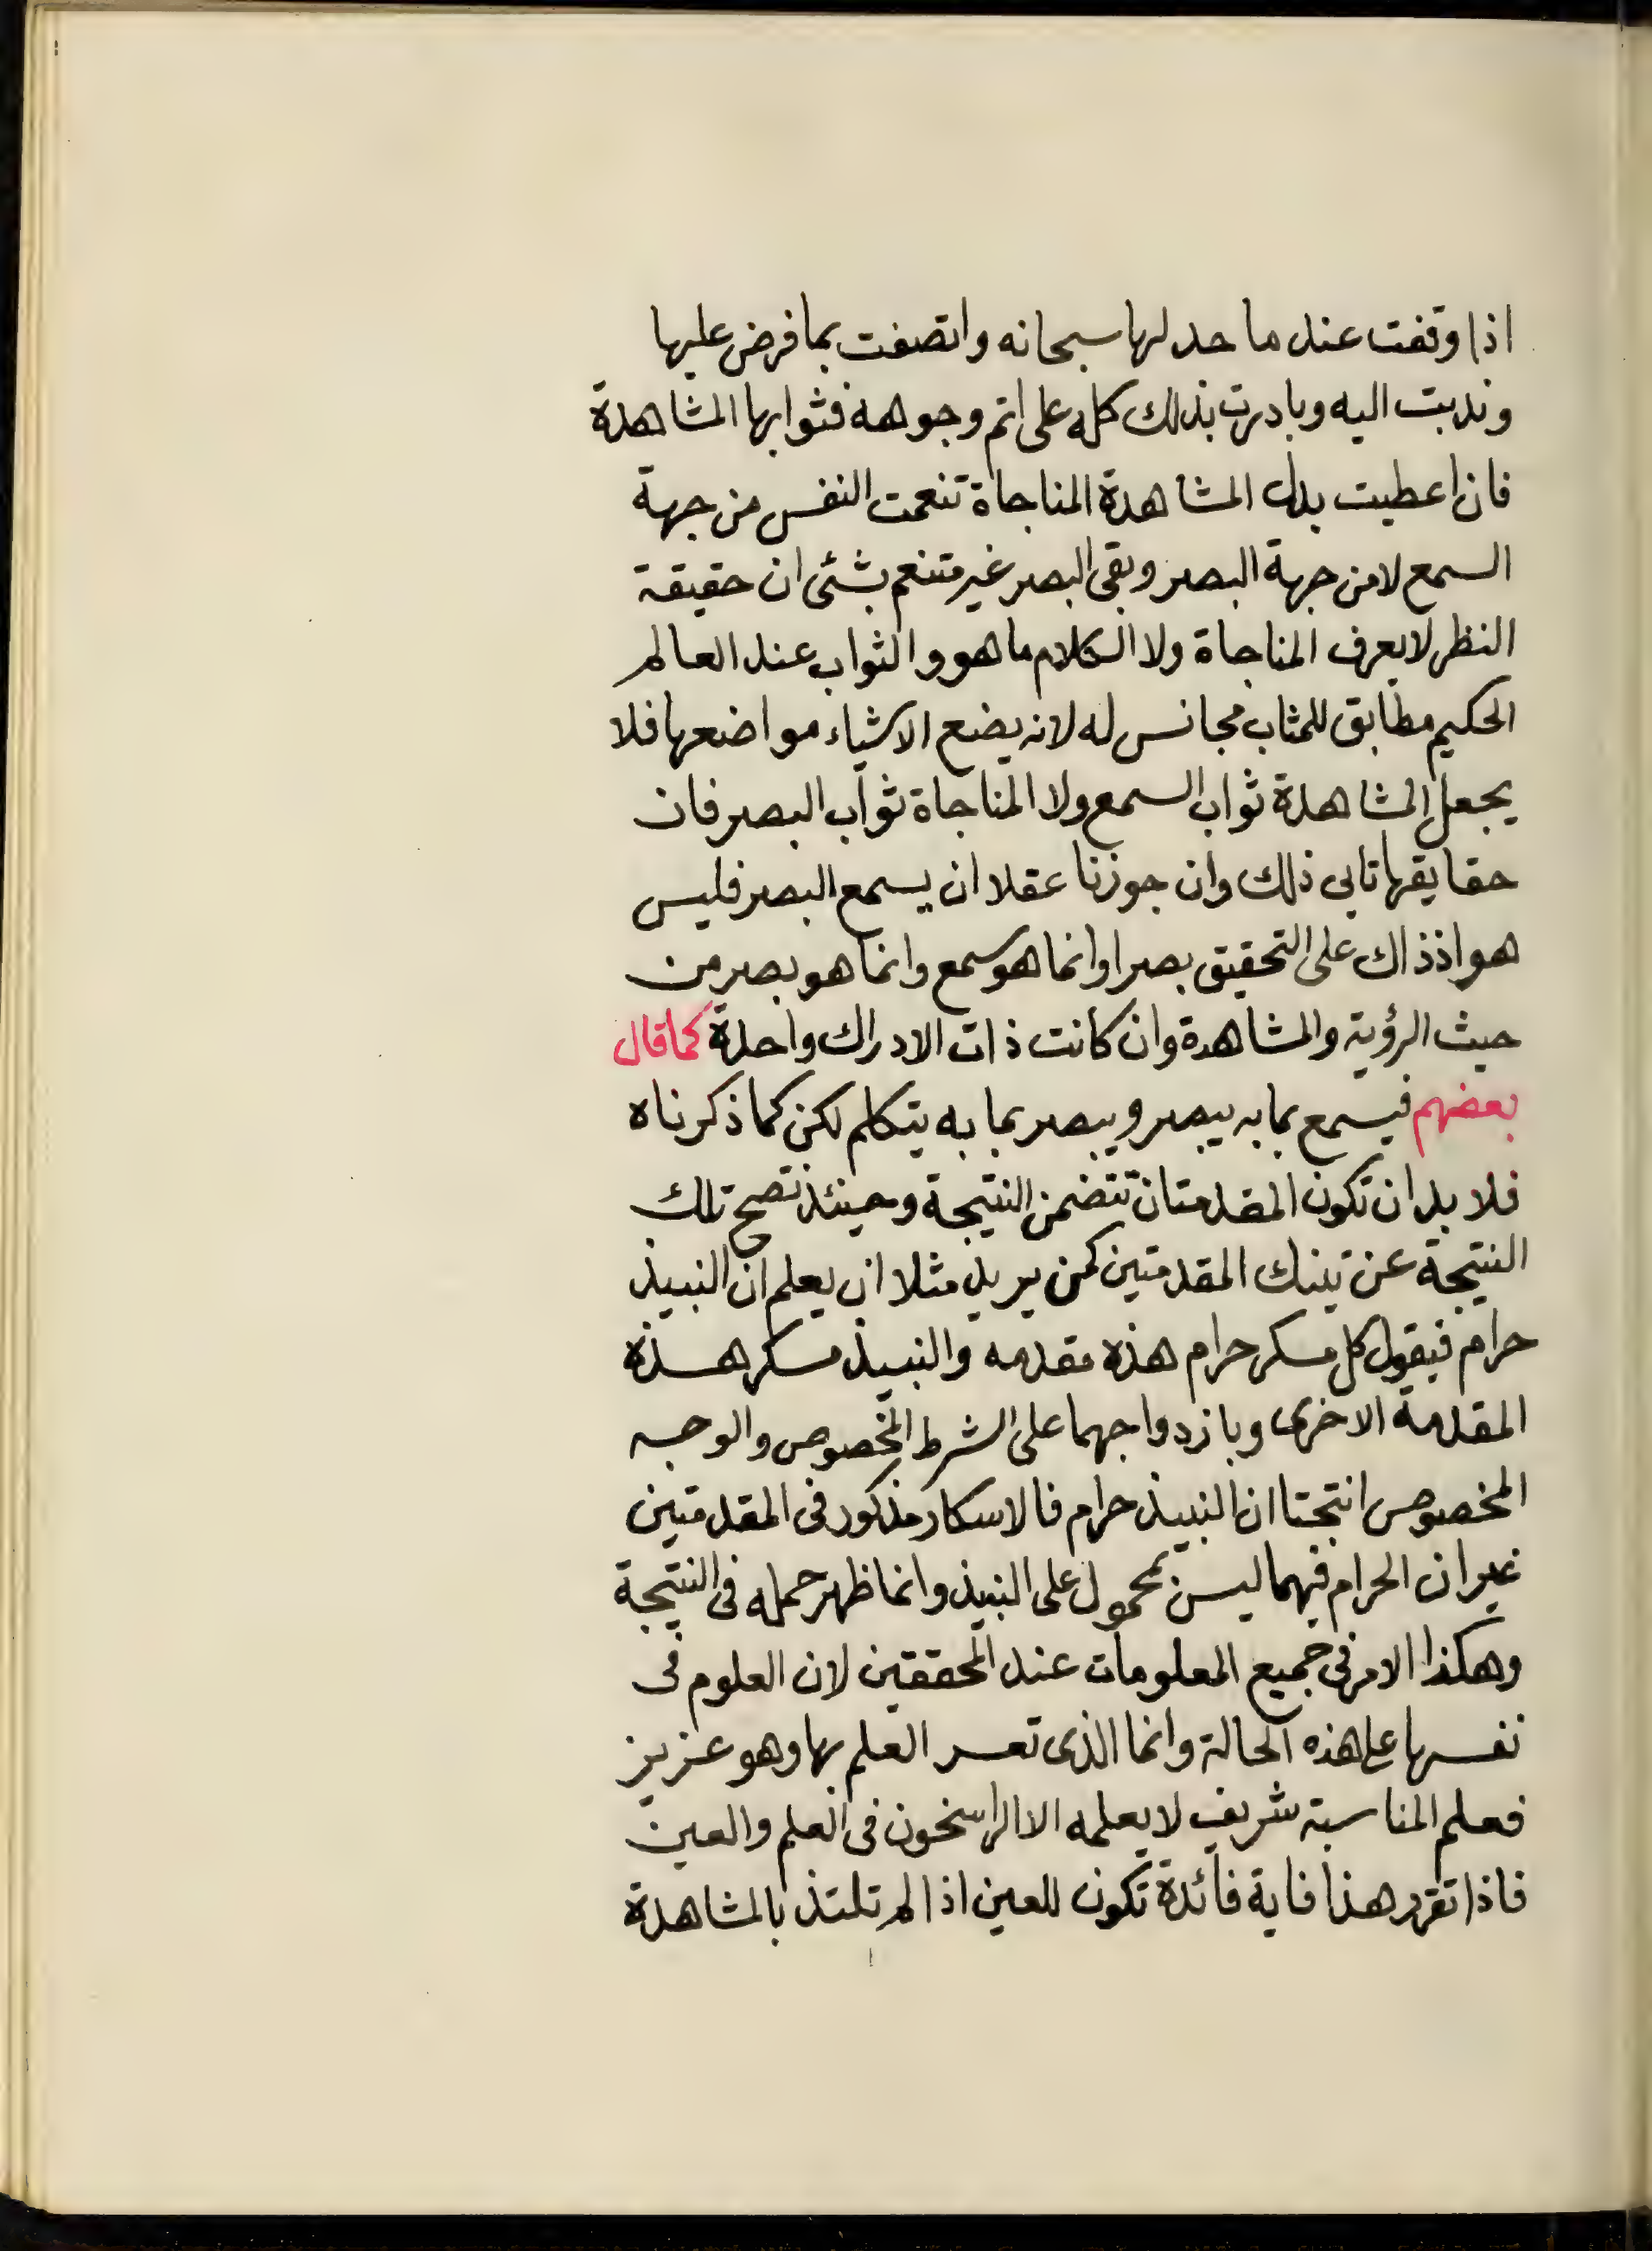 اذا وقفت عند ما حد لها سبحانه واتصفت بما فرض عليها
وندبت اليه وبادرت بذلك كله على اتم وجوهه فثوابها المشاهدة
فان اعطيت بدل المشاهدة المناجاة تنعمت النفس من جهة
السمع لا من جهة البصر وبقى البصر غير متنعم بشئ ان حقيقة
النظر لا يعرف المناجاة ولا الكلام ما هو والثواب عند العالم
الحكيم مطابق للمثاب مجانس له لانه يضع الاشياء مواضعها فلا
يجعل المشاهدة ثواب السمع ولا المناجاة ثواب البصر فان
حقايقها تابى ذلك وان جوزنا عقلا ان يسمع البصر فليس
هو اذ ذاك على التحقيق بصرا وانما هو سمع وانما هو بصر من
حيث الرؤية والمشاهدة وان كانت ذات الادراك واحدة كما قال
بعضهم فيسمع بما به يبصر ويبصر بما به يتكلم لكن كما ذكرناه
فلا بد ان تكون المقدمتان تتضمن النتيجة وحينئذ تصح تلك
النتيجة عن تينك المقدمتين كمن يريد مثلا ان يعلم ان النبيذ
حرام فيقول كل مسكر حرام هذه مقدمه والنبيذ مسكر هذه
المقدمة الاخرى وبازدواجهما على الشرط المخصوص والوجه
المخصوص انتجتا ان النبيذ حرام فالاسكار مذكور فى المقدمتين
غير ان الحرام فيهما ليس بمحمول على النبيذ وانما ظهر حمله فى النتيجة
وهكذا الامر فى جميع المعلومات عند المحققين لان العلوم فى
نفسها على هذه الحالة وانما الذى تعسر العلم بها وهو عزيز
فعلم المناسبة شريف لا يعلمه الا الراسخون فى العلم والعين
فاذا تقرر هذا فاية فائدة تكون للعين اذا لم تلتذ بالمشاهدة